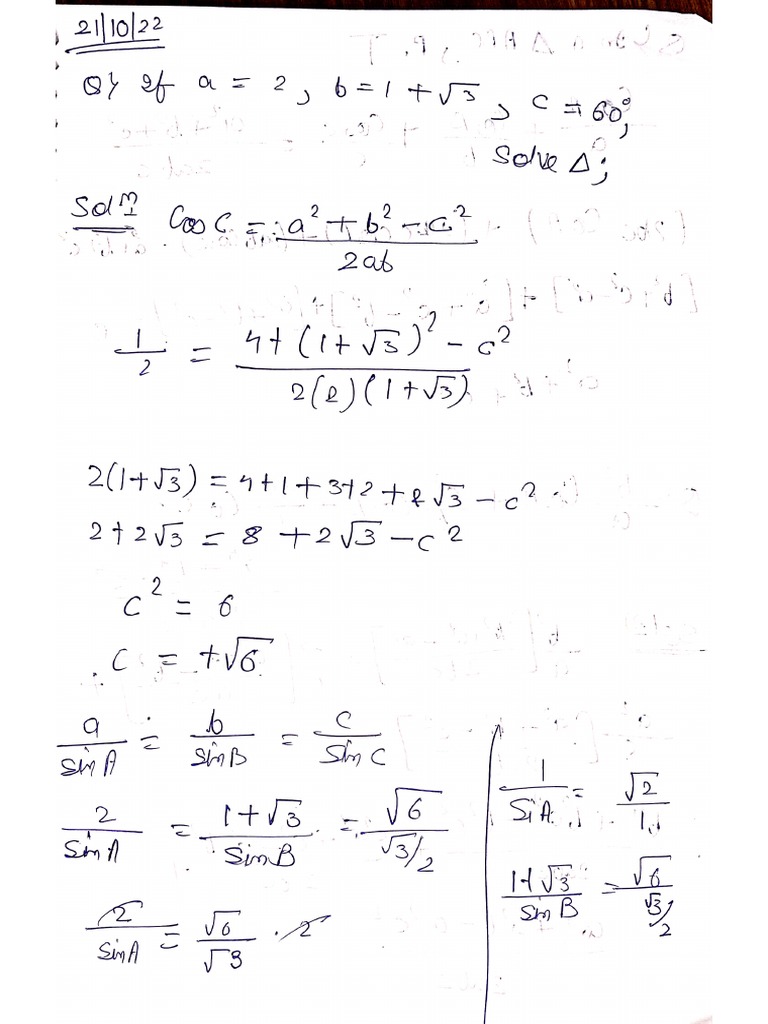 21/10/22
Q) If a = 2, b = 1 + √3, C = 60°,
Solve Δ;
Solⁿ Cos C = (a² + b² - c²) / 2ab
1/2 = (4 + (1 + √3)² - c²) / (2(2)(1 + √3))
2(1+√3) = 4+1+3+2+2√3 - c²
2 + 2√3 = 8 + 2√3 - c²
c² = 6
c = +√6
a/sin A = b/sin B = c/sin C
2/sin A = (1+√3)/sin B = √6/(√3/2)
2/sin A = √6/√3 · 2
1/Sin A = √2/1
(1+√3)/sin B = √6/(√3/2)